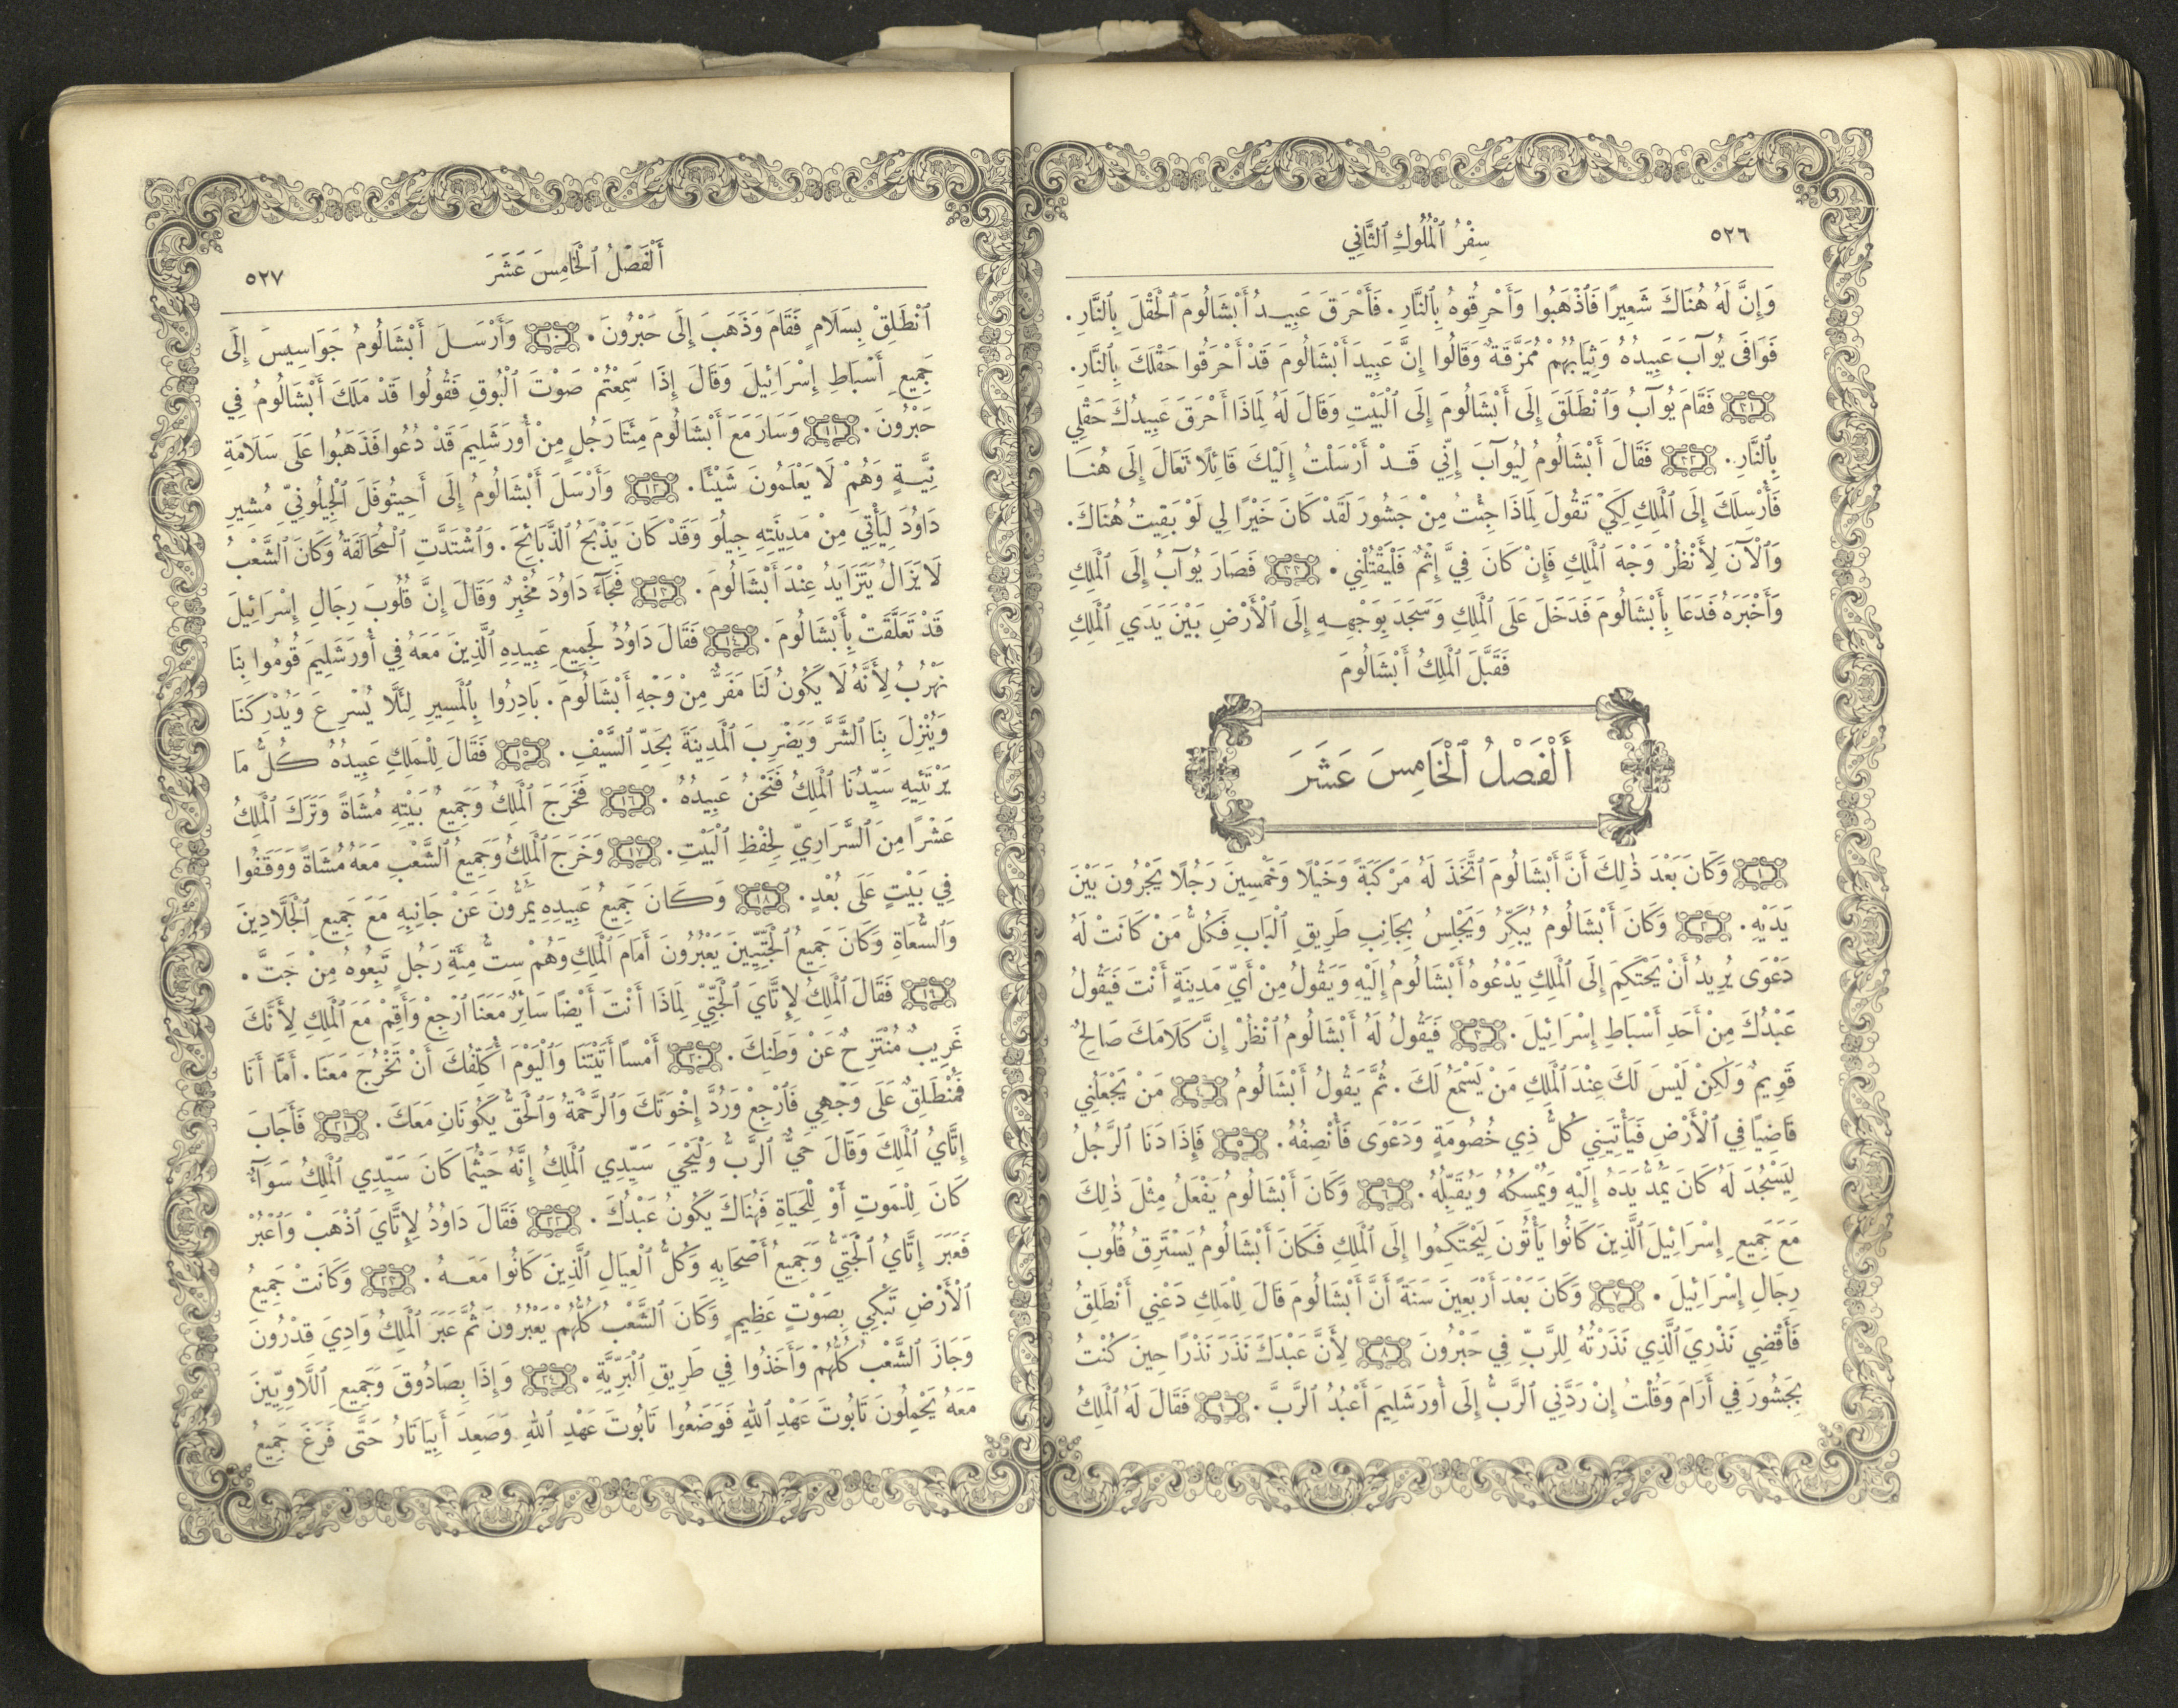 ٥٢٦
سِفْرُ ٱلْمُلُوكِ ٱلثَّانِي
وَإِنَّ لَهُ هُنَاكَ شَعِيرًا فَٱذْهَبُوا وَأَحْرِقُوهُ بِٱلنَّارِ. فَأَحْرَقَ عَبِيدُ أَبْشَالُومَ ٱلْحَقْلَ بِٱلنَّارِ.
فَوَافَى يُوآبَ عَبِيدُهُ وَثِيَابُهُمْ مُمَزَّقَةٌ وَقَالُوا إِنَّ عَبِيدَ أَبْشَالُومَ قَدْ أَحْرَقُوا حَقْلَكَ بِٱلنَّارِ.
٣١ فَقَامَ يُوآبُ وَٱنْطَلَقَ إِلَى أَبْشَالُومَ إِلَى ٱلْبَيْتِ وَقَالَ لَهُ لِمَاذَا أَحْرَقَ عَبِيدُكَ حَقْلِي
بِٱلنَّارِ. ٣٢ فَقَالَ أَبْشَالُومُ لِيُوآبَ إِنِّي قَدْ أَرْسَلْتُ إِلَيْكَ قَائِلًا تَعَالَ إِلَى هُنَا
فَأُرْسِلَكَ إِلَى ٱلْمَلِكِ لِكَيْ تَقُولَ لِمَاذَا جِئْتُ مِنْ جَشُورَ لَقَدْ كَانَ خَيْرًا لِي لَوْ بَقِيتُ هُنَاكَ.
وَٱلْآنَ لِأَنْظُرْ وَجْهَ ٱلْمَلِكِ فَإِنْ كَانَ فِيَّ إِثْمٌ فَلْيَقْتُلْنِي. ٣٣ فَصَارَ يُوآبُ إِلَى ٱلْمَلِكِ
وَأَخْبَرَهُ فَدَعَا بِأَبْشَالُومَ فَدَخَلَ عَلَى ٱلْمَلِكِ وَسَجَدَ بِوَجْهِهِ إِلَى ٱلْأَرْضِ بَيْنَ يَدَيِ ٱلْمَلِكِ
فَقَبَّلَ ٱلْمَلِكُ أَبْشَالُومَ
أَلْفَصْلُ ٱلْخَامِسَ عَشَرَ
١ وَكَانَ بَعْدَ ذٰلِكَ أَنَّ أَبْشَالُومَ ٱتَّخَذَ لَهُ مَرْكَبَةً وَخَيْلًا وَخَمْسِينَ رَجُلًا يَجْرُونَ بَيْنَ
يَدَيْهِ. ٢ وَكَانَ أَبْشَالُومُ يُبَكِّرُ وَيَجْلِسُ بِجَانِبِ طَرِيقِ ٱلْبَابِ فَكُلُّ مَنْ كَانَتْ لَهُ
دَعْوَى يُرِيدُ أَنْ يَحْتَكِمَ إِلَى ٱلْمَلِكِ يَدْعُوهُ أَبْشَالُومُ إِلَيْهِ وَيَقُولُ مِنْ أَيِّ مَدِينَةٍ أَنْتَ فَيَقُولُ
عَبْدُكَ مِنْ أَحَدِ أَسْبَاطِ إِسْرَائِيلَ. ٣ فَيَقُولُ لَهُ أَبْشَالُومُ ٱنْظُرْ إِنَّ كَلَامَكَ صَالِحٌ
قَوِيمٌ وَلٰكِنْ لَيْسَ لَكَ عِنْدَ ٱلْمَلِكِ مَنْ يَسْمَعُ لَكَ. ثُمَّ يَقُولُ أَبْشَالُومُ ٤ مَنْ يَجْعَلُنِي
قَاضِيًا فِي ٱلْأَرْضِ فَيَأْتِيَنِي كُلُّ ذِي خُصُومَةٍ وَدَعْوَى فَأُنْصِفُهُ. ٥ فَإِذَا دَنَا ٱلرَّجُلُ
لِيَسْجُدَ لَهُ كَانَ يَمُدُّ يَدَهُ إِلَيْهِ وَيُمْسِكُهُ وَيُقَبِّلُهُ. ٦ وَكَانَ أَبْشَالُومُ يَفْعَلُ مِثْلَ ذٰلِكَ
مَعَ جَمِيعِ إِسْرَائِيلَ ٱلَّذِينَ كَانُوا يَأْتُونَ لِيَحْتَكِمُوا إِلَى ٱلْمَلِكِ فَكَانَ أَبْشَالُومُ يَسْتَرِقُ قُلُوبَ
رِجَالِ إِسْرَائِيلَ. ٧ وَكَانَ بَعْدَ أَرْبَعِينَ سَنَةً أَنَّ أَبْشَالُومَ قَالَ لِلْمَلِكِ دَعْنِي أَنْطَلِقُ
فَأَقْضِي نَذْرِيَ ٱلَّذِي نَذَرْتُهُ لِلرَّبِّ فِي حَبْرُونَ ٨ لِأَنَّ عَبْدَكَ نَذَرَ نَذْرًا حِينَ كُنْتُ
بِجَشُورَ فِي أَرَامَ وَقُلْتُ إِنْ رَدَّنِي ٱلرَّبُّ إِلَى أُورَشَلِيمَ أَعْبُدُ ٱلرَّبَّ. ٩ فَقَالَ لَهُ ٱلْمَلِكُ
أَلْفَصْلُ ٱلْخَامِسَ عَشَرَ
٥٢٧
ٱنْطَلِقْ بِسَلَامٍ فَقَامَ وَذَهَبَ إِلَى حَبْرُونَ. ١٠ وَأَرْسَلَ أَبْشَالُومُ جَوَاسِيسَ إِلَى
جَمِيعِ أَسْبَاطِ إِسْرَائِيلَ وَقَالَ إِذَا سَمِعْتُمْ صَوْتَ ٱلْبُوقِ فَقُولُوا قَدْ مَلَكَ أَبْشَالُومُ فِي
حَبْرُونَ. ١١ وَسَارَ مَعَ أَبْشَالُومَ مِئَتَا رَجُلٍ مِنْ أُورَشَلِيمَ قَدْ دُعُوا فَذَهَبُوا عَلَى سَلَامَةِ
نِيَّةٍ وَهُمْ لَا يَعْلَمُونَ شَيْئًا. ١٢ وَأَرْسَلَ أَبْشَالُومُ إِلَى أَحِيتُوفَلَ ٱلْجِيلُونِيِّ مُشِيرِ
دَاوُدَ لِيَأْتِيَ مِنْ مَدِينَتِهِ جِيلُوَ وَقَدْ كَانَ يَذْبَحُ ٱلذَّبَائِحَ. وَٱشْتَدَّتِ ٱلْمُحَالَفَةُ وَكَانَ ٱلشَّعْبُ
لَا يَزَالُ يَتَزَايَدُ عِنْدَ أَبْشَالُومَ. ١٣ فَجَآءَ دَاوُدَ مُخْبِرٌ وَقَالَ إِنَّ قُلُوبَ رِجَالِ إِسْرَائِيلَ
قَدْ تَعَلَّقَتْ بِأَبْشَالُومَ. ١٤ فَقَالَ دَاوُدُ لِجَمِيعِ عَبِيدِهِ ٱلَّذِينَ مَعَهُ فِي أُورَشَلِيمَ قُومُوا بِنَا
نَهْرُبُ لِأَنَّهُ لَا يَكُونُ لَنَا مَفَرٌّ مِنْ وَجْهِ أَبْشَالُومَ. بَادِرُوا بِٱلْمَسِيرِ لِئَلَّا يُسْرِعَ وَيُدْرِكَنَا
وَيُنْزِلَ بِنَا ٱلشَّرَّ وَيَضْرِبَ ٱلْمَدِينَةَ بِحَدِّ ٱلسَّيْفِ. ١٥ فَقَالَ لِلْمَلِكِ عَبِيدُهُ كُلُّ مَا
يَرْتَئِيهِ سَيِّدُنَا ٱلْمَلِكُ فَنَحْنُ عَبِيدُهُ. ١٦ فَخَرَجَ ٱلْمَلِكُ وَجَمِيعُ بَيْتِهِ مُشَاةً وَتَرَكَ ٱلْمَلِكُ
عَشْرًا مِنَ ٱلسَّرَارِيِّ لِحِفْظِ ٱلْبَيْتِ. ١٧ وَخَرَجَ ٱلْمَلِكُ وَجَمِيعُ ٱلشَّعْبِ مَعَهُ مُشَاةً وَوَقَفُوا
فِي بَيْتٍ عَلَى بُعْدٍ. ١٨ وَكَانَ جَمِيعُ عَبِيدِهِ يَمُرُّونَ عَنْ جَانِبِهِ مَعَ جَمِيعِ ٱلْجَلَّادِينَ
وَٱلسُّعَاةِ وَكَانَ جَمِيعُ ٱلْجَتِّيِّينَ يَعْبُرُونَ أَمَامَ ٱلْمَلِكِ وَهُمْ سِتُّ مِئَةِ رَجُلٍ تَبِعُوهُ مِنْ جَتَّ.
١٩ فَقَالَ ٱلْمَلِكُ لِإِتَّايَ ٱلْجَتِّيِّ لِمَاذَا أَنْتَ أَيْضًا سَائِرٌ مَعَنَا ٱرْجِعْ وَأَقِمْ مَعَ ٱلْمَلِكِ لِأَنَّكَ
غَرِيبٌ مُنْتَزِحٌ عَنْ وَطَنِكَ. ٢٠ أَمْسًا أَتَيْتَنَا وَٱلْيَوْمَ أُكَلِّفُكَ أَنْ تَخْرُجَ مَعَنَا. أَمَّا أَنَا
فَمُنْطَلِقٌ عَلَى وَجْهِي فَٱرْجِعْ وَرُدَّ إِخْوَتَكَ وَٱلرَّحْمَةُ وَٱلْحَقُّ يَكُونَانِ مَعَكَ. ٢١ فَأَجَابَ
إِتَّايُ ٱلْمَلِكَ وَقَالَ حَيٌّ ٱلرَّبُّ وَلْيَحْيَ سَيِّدِي ٱلْمَلِكُ إِنَّهُ حَيْثُمَا كَانَ سَيِّدِي ٱلْمَلِكُ سَوَآءٌ
كَانَ لِلْمَوتِ أَوْ لِلْحَيَاةِ فَهُنَاكَ يَكُونُ عَبْدُكَ. ٢٢ فَقَالَ دَاوُدُ لِإِتَّايَ ٱذْهَبْ وَٱعْبُرْ
فَعَبَرَ إِتَّايُ ٱلْجَتِّيُّ وَجَمِيعُ أَصْحَابِهِ وَكُلُّ ٱلْعِيَالِ ٱلَّذِينَ كَانُوا مَعَهُ. ٢٣ وَكَانَتْ جَمِيعُ
ٱلْأَرْضِ تَبْكِي بِصَوْتٍ عَظِيمٍ وَكَانَ ٱلشَّعْبُ كُلُّهُمْ يَعْبُرُونَ ثُمَّ عَبَرَ ٱلْمَلِكُ وَادِيَ قِدْرُونَ
وَجَازَ ٱلشَّعْبُ كُلُّهُمْ وَأَخَذُوا فِي طَرِيقِ ٱلْبَرِّيَّةِ. ٢٤ وَإِذَا بِصَادُوقَ وَجَمِيعِ ٱللَّاوِيِّينَ
مَعَهُ يَحْمِلُونَ تَابُوتَ عَهْدِ ٱللهِ فَوَضَعُوا تَابُوتَ عَهْدِ ٱللهِ وَصَعِدَ أَبِيَاتَارُ حَتَّى فَرَغَ جَمِيعُ